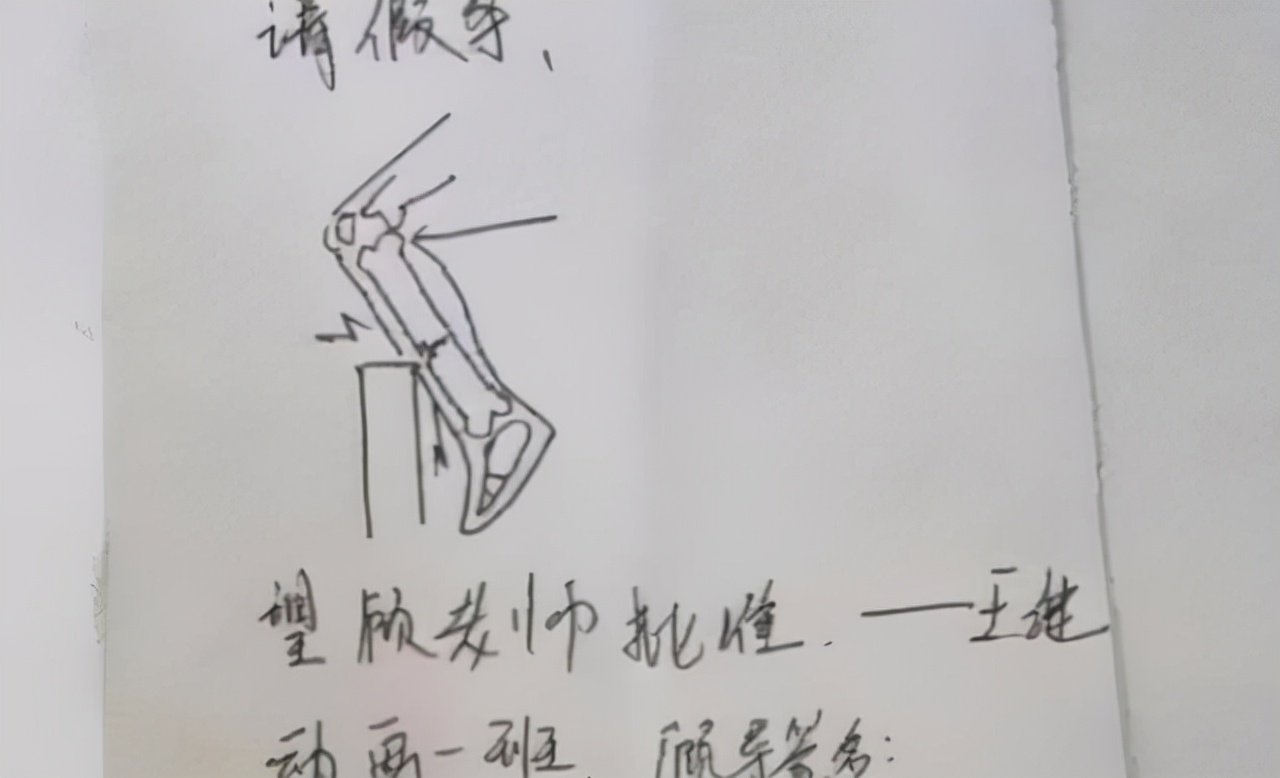 请假条、
望顾老师批准. ——王建
动画一班. 顾导签名: